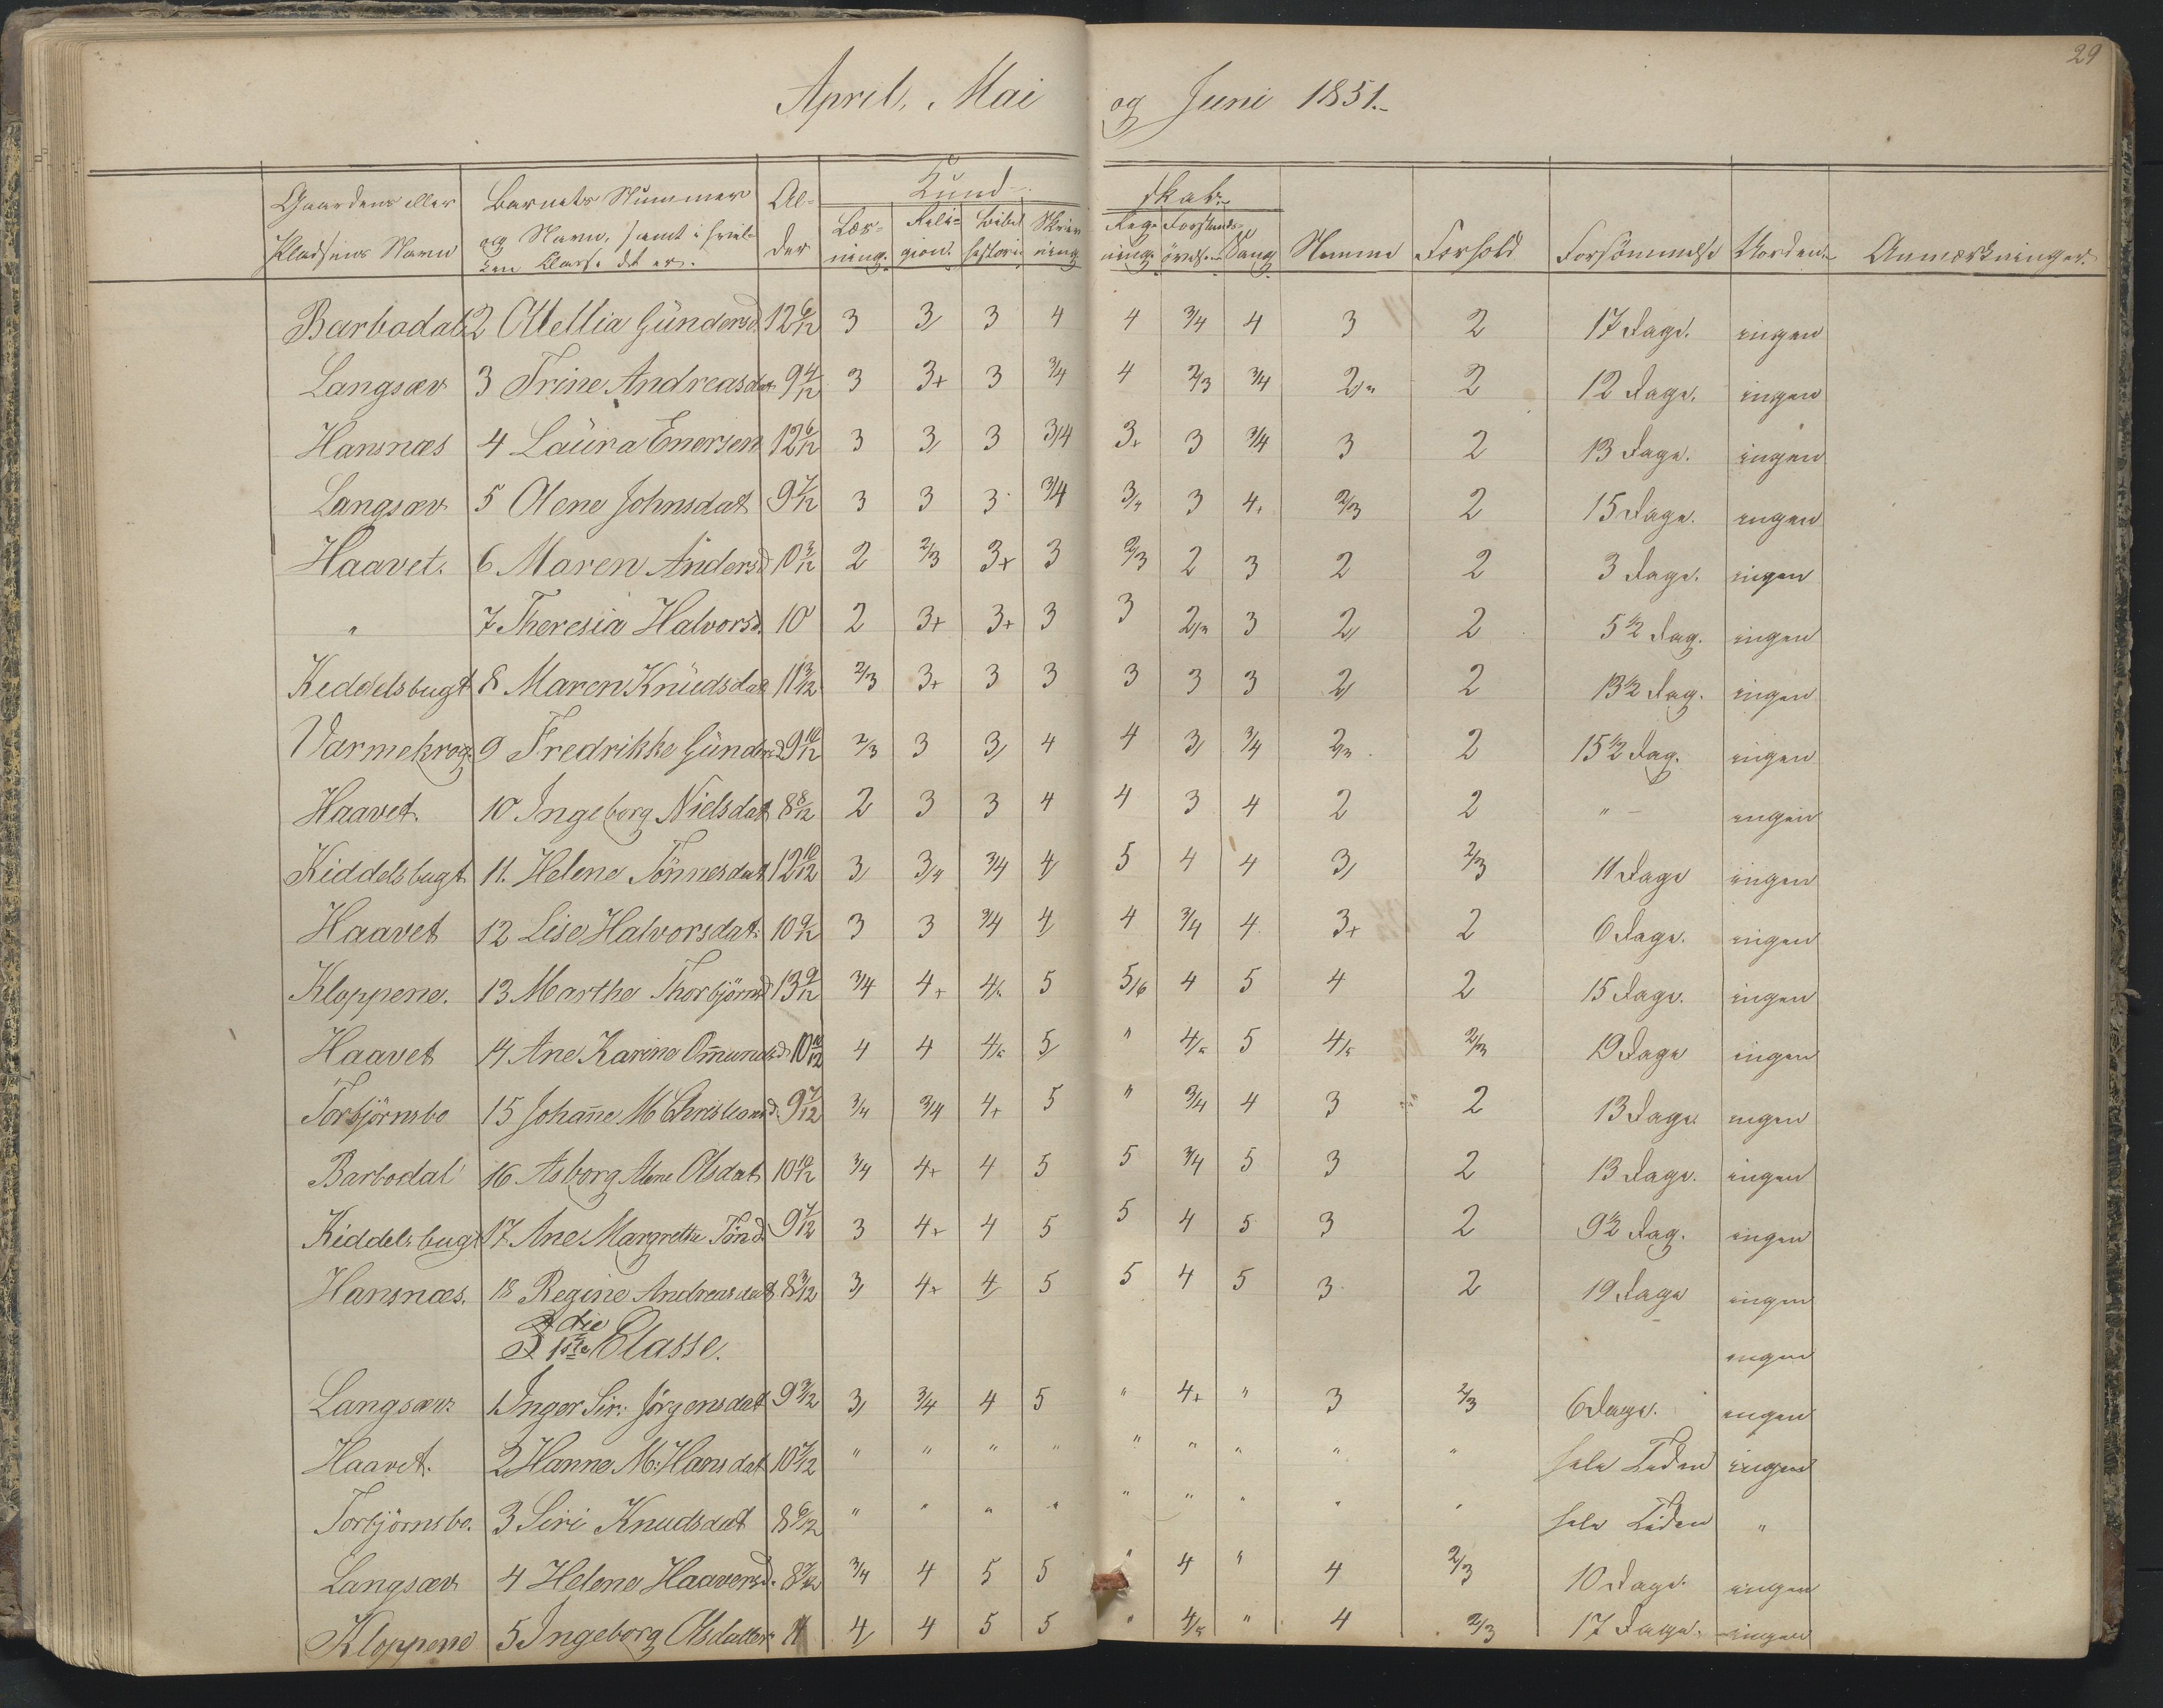 29
April, Mai og Juni 1851.
Gaardens eller Pladsens Navn | Barnets Nummer og Navn, samt i hvilken Classe det er. | Alder | Kundskab: Læsning. | Religion. | Bibelhistorie | Skrivning | Regning. | Forstandsövelse. | Sang | Nemme | Forhold | Forsömmelse | Orden | Anmærkninger.
Barbodal 2 Otellia Gündersd. 12 6/12 3 3 3 4 4 3/4 4 3 2 17 Dage. ingen
Langsæv 3 Trine Andreasdat 9 4/12 3 3+ 3 3/4 4 2/3 3/4 2 2 12 Dage. ingen
Hansnæs 4 Laüra Enersen 12 6/12 3 3 3 3/4 3+ 3 3/4 3 2 13 Dage. ingen
Langsæv 5 Olene Johnsdat 9 7/12 3 3 3 3/4 3/4 3 4+ 2/3 2 15 Dage. ingen
Haavet. 6 Maren Andersd 10 3/12 2 2/3 3+ 3 2/3 2 3 2 2 3 Dage. ingen
" 7 Theresia Halvorsd. 10 2 3+ 3+ 3 3 2/3 3 2 2 5 1/2 Dag. ingen
Keddelsbugt 8 Maren Knüdsdat 11 3/12 2/3 3+ 3 3 3 3 3 2 2 13 1/2 Dag. ingen
Varmekrog. 9 Fredrikke Gündersd 9 10/12 2/3 3 3 4 4 3 3/4 2/3 2 15 1/2 Dag. ingen
Haavet. 10 Ingeborg Nielsdat 8 8/12 2 3 3 4 4 3 4 2 2 " ingen
Kiddelsbugt 11. Helene Tönnesdat 12 10/12 3 3/4 3/4 4 5 4 4 3 2/3 11 Dage ingen
Haavet 12 Lise Halvorsdat. 10 9/12 3 3 3/4 4 4 3/4 4 3+ 2 6 Dage. ingen
Kloppene. 13 Marthe Thorbjörnsd 13 9/12 3/4 4+ 4/5 5 5/6 4 5 4 2 15 Dage. ingen
Haavet 14 Ane Karine Om̄undsd. 10 10/12 4 4 4/5 5 " 4/5 5 4/5 2/3 19 Dage ingen
Torbjörnsbo 15 Johan̄e M Christiansd. 9 7/12 3/4 3/4 4+ 5 " 3/4 4 3 2 13 Dage ingen
Barbodal 16 Asborg Alene Olsdat 10 10/12 3/4 4+ 4 5 5 3/4 5 3 2 13 Dage. ingen
Kiddelsbugt 17. Ane Margrethe Tönd 9 7/12 3 4+ 4 5 5 4 5 3 2 9 1/2 Dag. ingen
Hansnæs. 18 Regine Andreasdat 8 3/12 3 4+ 4 5 5 4 5 3 2 19 Dage ingen
I 1ste Classe. ingen
Langsæv. 1 Inger Sir: Jörgensdat 9 3/12 3 3/4 4 5 " 4+ " 3 2/3 6 Dage. ingen
Haavet. 2 Hanne M: Hansdat 10 7/12 " " " " " " " " " hele Tiden ingen
Torbjörnsbo. 3 Siri Knudsdat 8 6/12 " " " " " " " " " hele Tiden "
Langsæv 4 Helene Haaversd. 8 7/12 3/4 4 5 5 " 4 " 4 2/3 10 Dage. ingen
Kloppene 5 Ingeborg Olsdatter 11 4 4 5 5 " 4/5 " 4 2/3 17 Dage. ingen